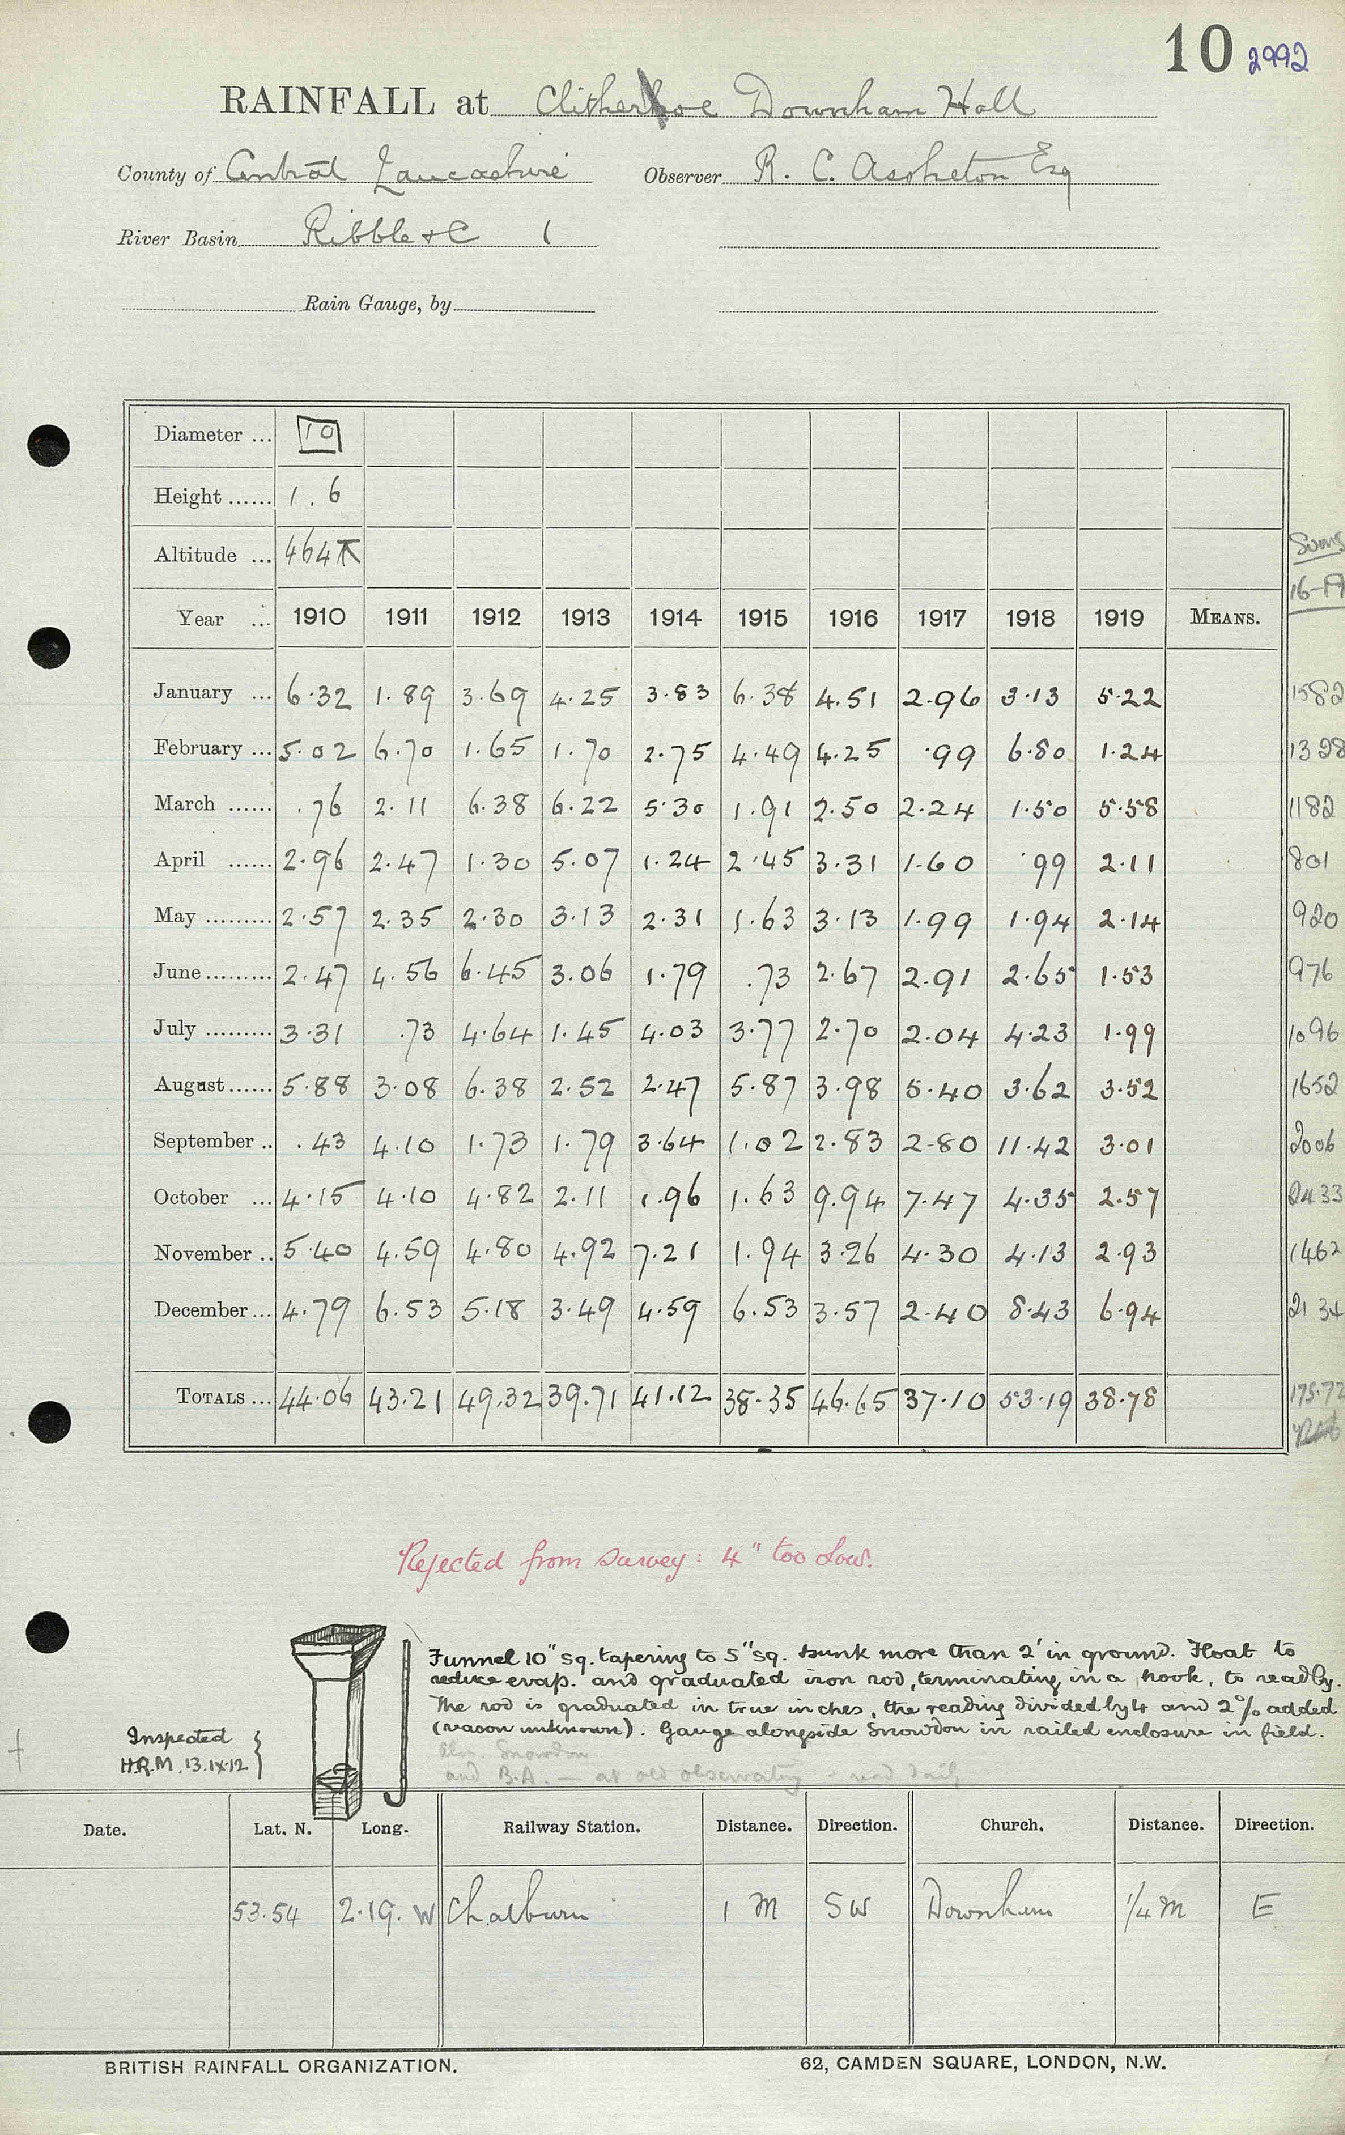 10 2992
RAINFALL at Clitheroe Downham Hall
County of Central Lancashire Observer R. C. Assheton Esq
River Basin Ribble & C 1
Rain Gauge, by
Diameter ... 10
Height ...... 1.6
Altitude ... 464 Sums
Year ... 1910 1911 1912 1913 1914 1915 1916 1917 1918 1919 MEANS. 16-19
January ... 6.32 1.89 3.69 4.25 3.83 6.38 4.51 2.96 3.13 5.22 1582
February ... 5.02 6.70 1.65 1.70 2.75 4.49 4.25 .99 6.80 1.24 1328
March ...... .76 2.11 6.38 6.22 5.30 1.91 2.50 2.24 1.50 5.58 1182
April ...... 2.96 2.47 1.30 5.07 1.24 2.45 3.31 1.60 .99 2.11 801
May ......... 2.57 2.35 2.30 3.13 2.31 1.63 3.13 1.99 1.94 2.14 920
June ......... 2.47 4.56 6.45 3.06 1.79 .73 2.67 2.91 2.65 1.53 976
July ......... 3.31 .73 4.64 1.45 4.03 3.77 2.70 2.04 4.23 1.99 1096
August ...... 5.88 3.08 6.38 2.52 2.47 5.87 3.98 5.40 3.62 3.52 1652
September .. .43 4.10 1.73 1.79 3.64 1.02 2.83 2.80 11.42 3.01 2006
October ... 4.15 4.10 4.82 2.11 1.96 1.63 9.94 7.47 4.35 2.57 2433
November .. 5.40 4.59 4.80 4.92 7.21 1.94 3.26 4.30 4.13 2.93 1462
December ... 4.79 6.53 5.18 3.49 4.59 6.53 3.57 2.40 8.43 6.94 2134
TOTALS ... 44.06 43.21 49.32 39.71 41.12 38.35 46.65 37.10 53.19 38.78 175.72
Rejected from survey: 4" too low.
Funnel 10" sq. tapering to 5" sq. sunk more than 2' in ground. Float to
reduce evap. and graduated iron rod, terminating in a hook, to read by.
The rod is graduated in true inches, the reading divided by 4 and 2% added
(reason unknown). Gauge alongside Snowdon in railed enclosure in field.
Inspected
H.R.M. 13.IX.12
Snowdon
and B.A. — at old observatory - read daily
Date. Lat. N. Long. Railway Station. Distance. Direction. Church. Distance. Direction.
53.54 2.19. W Chatburn 1 M SW Downham 1/4 M E
BRITISH RAINFALL ORGANIZATION. 62, CAMDEN SQUARE, LONDON, N.W.